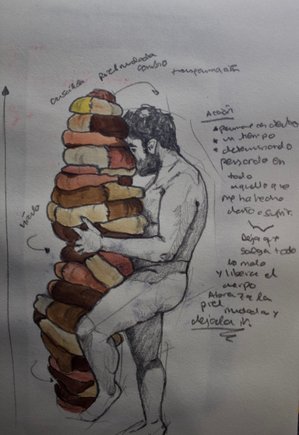 piel mudada
cambio
transformación
Acción
permanecer dentro
un tiempo
determinado
pensando en
todo
aquello que
me ha hecho
daño o sufrir.
Deja que
salga todo
lo malo
y liberar el
cuerpo
Abrazar la
piel
mudada y
dejarla ir